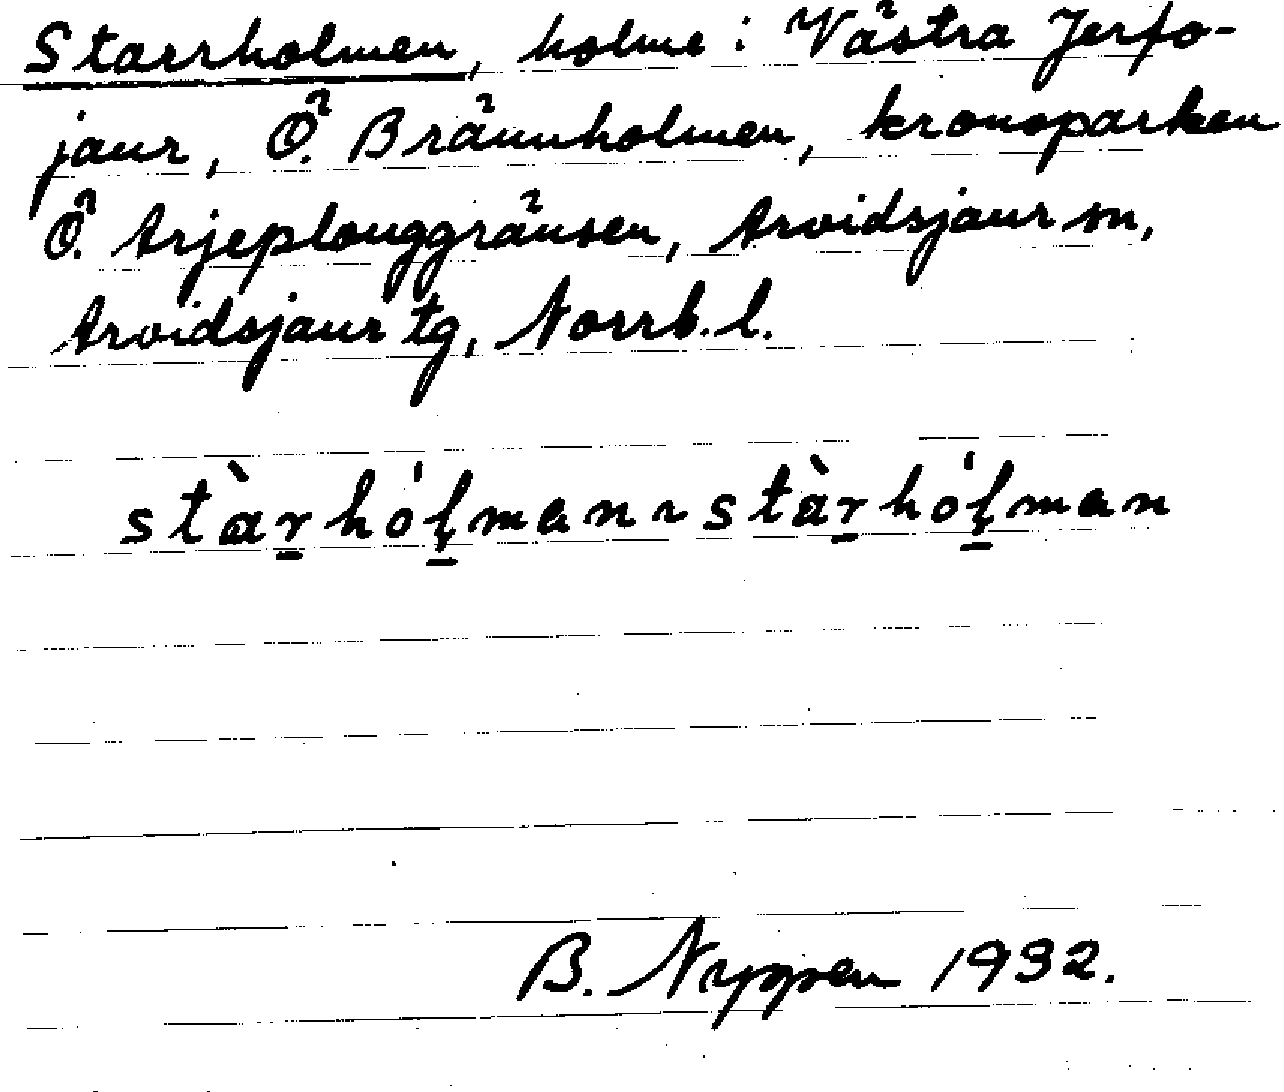 Starrholmen, holme i Västra Jerfo-
jaur, Ö. Brännholmen, kronoparken
Ö. Arjeplouggränsen, Arvidsjaur sn,
Arvidsjaur tg, Norrb. l.
stàr̲hól̲man ~ stàr̲hól̲man
B. Nyppen 1932.